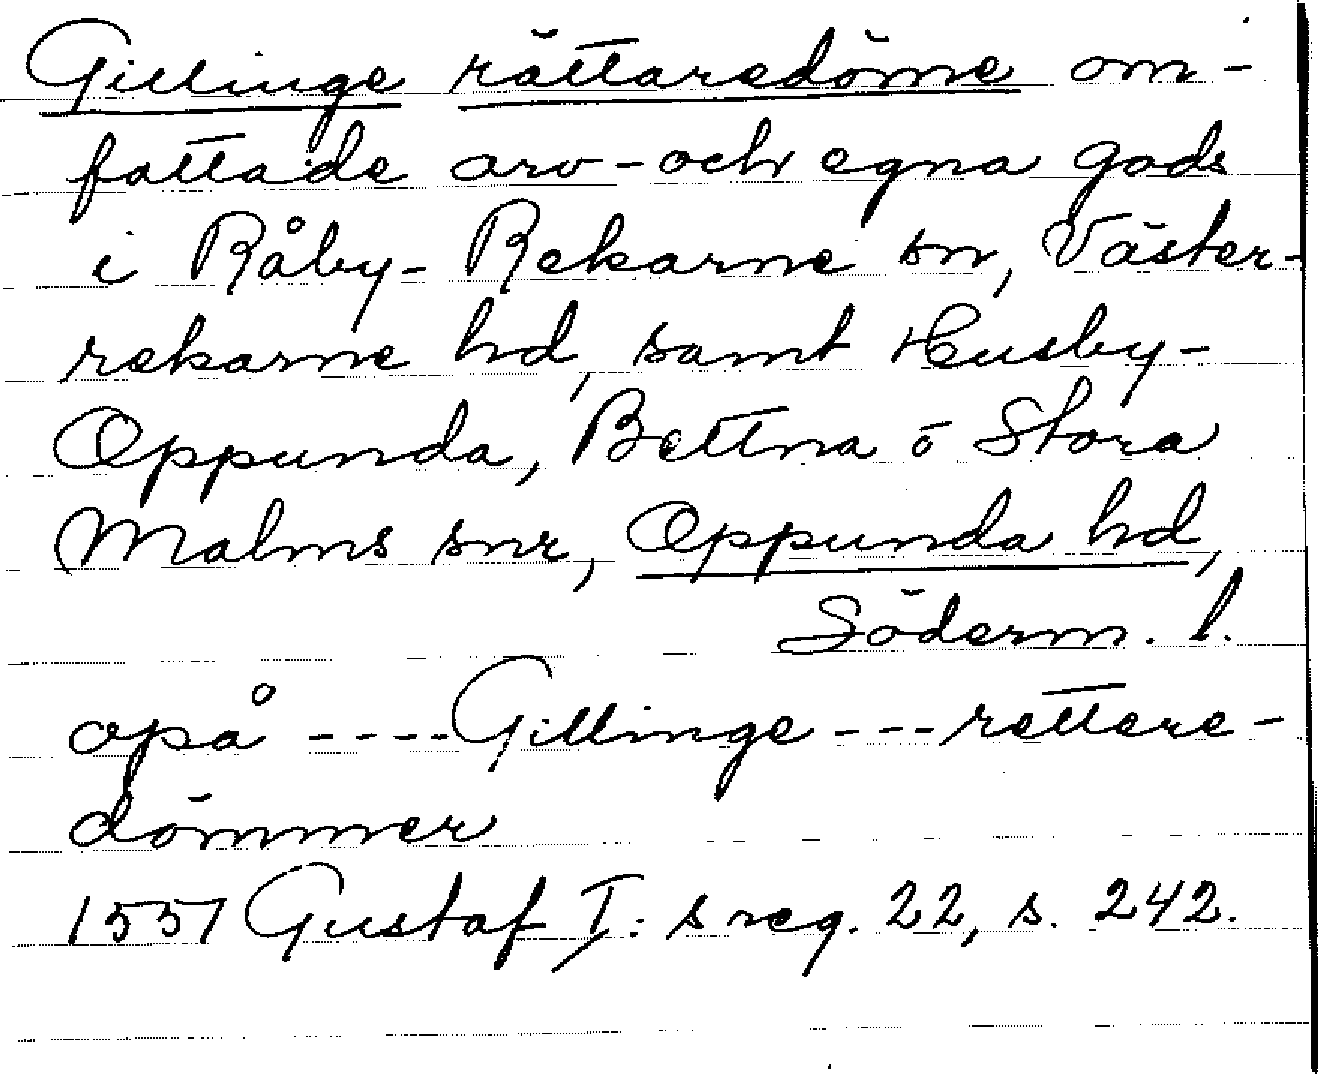 Gillinge rättaredöme om-
fattade arv- och egna gods
i Råby-Rekarne sn, Väster-
rekarne hd, samt Husby-
Oppunda, Bettna o Stora
Malms snr, Oppunda hd,
Söderm. l.
opå ---- Gillinge --- rettere-
dömmer
1557 Gustaf I:s reg. 22, s. 242.